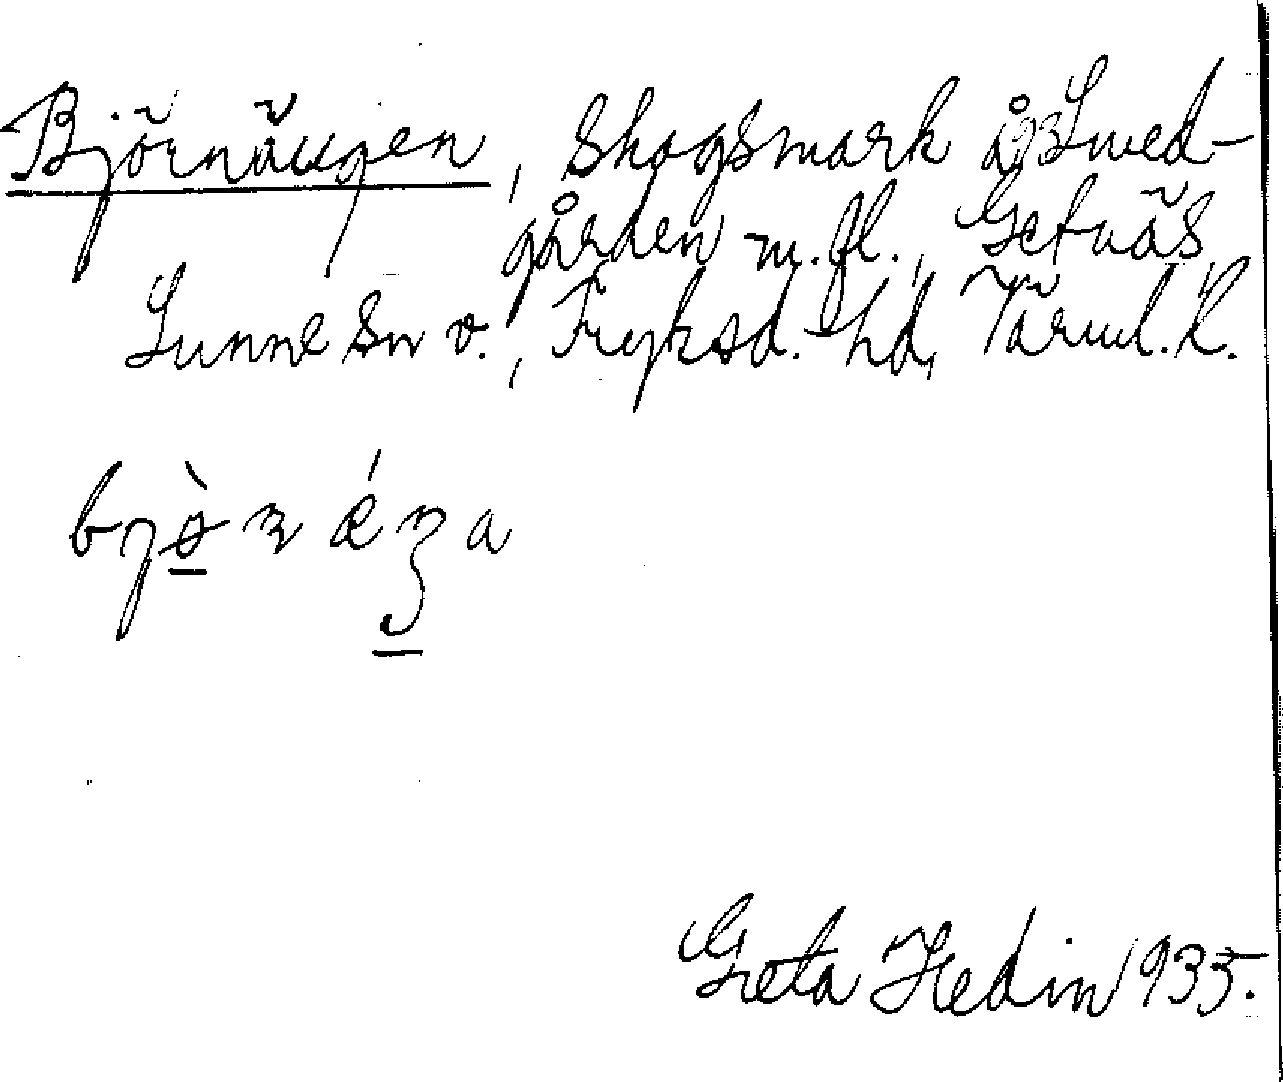 Björnängen, Skogsmark å Smed-
gården m.fl., Getnäs
Sunne Sn v., Fryksd. hd, Värml. l.
Greta Hedin 1935.